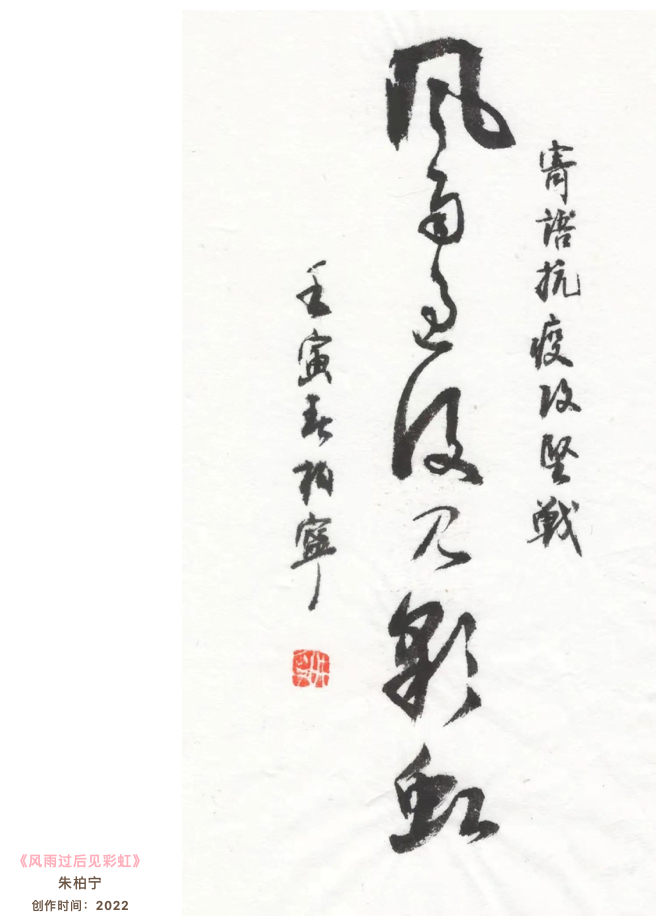 寄語抗疫攻堅戰
風雨過後見彩虹
壬寅春柏寧
《风雨过后见彩虹》
朱柏宁
创作时间：2022